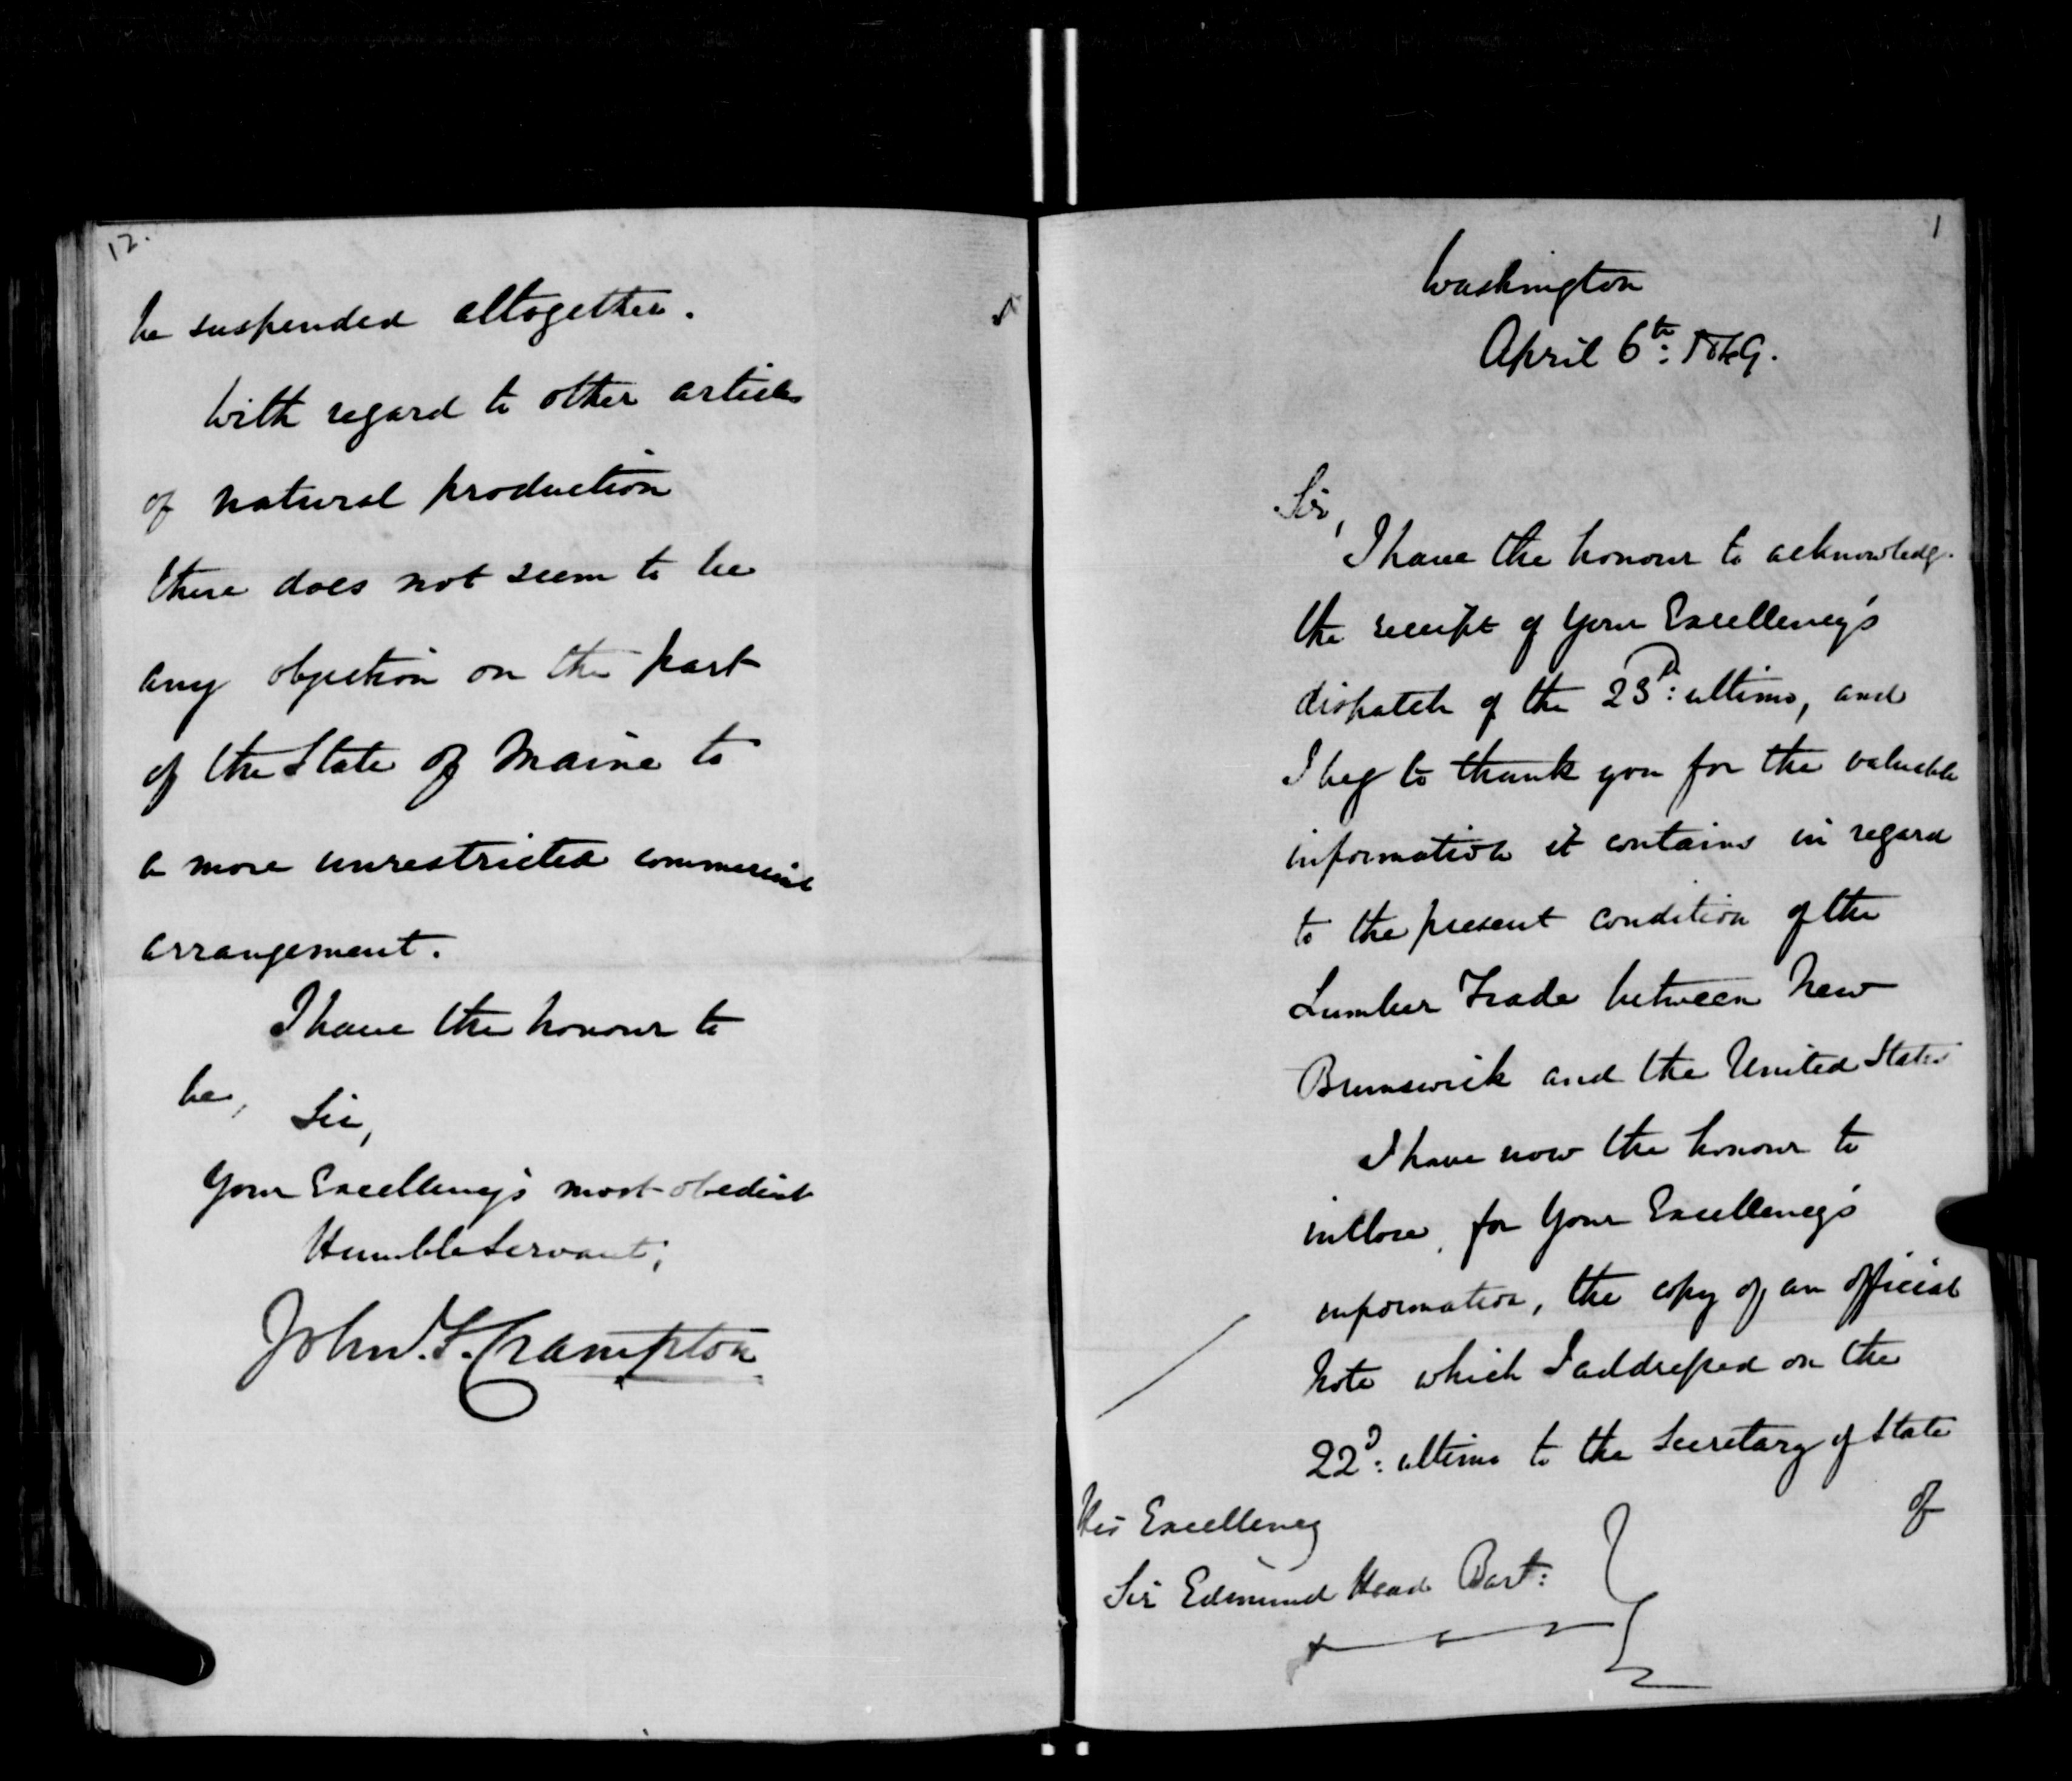 12.
be suspended altogether.
With regard to other articles
of natural production
there does not seem to be
any objection on the part
of the State of Maine to
a more unrestricted commercial
arrangement.
I have the honour to
be,
Sir,
Your Excellency's most obedient
Humble Servant,
John. F. Crampton
1
Washington
April 6th: 1849.
Sir,
I have the honour to acknowledge
the receipt of Your Excellency's
dispatch of the 23d: ultimo, and
I beg to thank you for the valuable
information it contains in regard
to the present condition of the
Lumber Trade between New
Brunswick and the United States
I have now the honour to
inclose, for Your Excellency's
information, the copy of an official
Note which I addressed on the
22d: ultimo to the Secretary of State
of
His Excellency
Sir Edmund Head Bart: